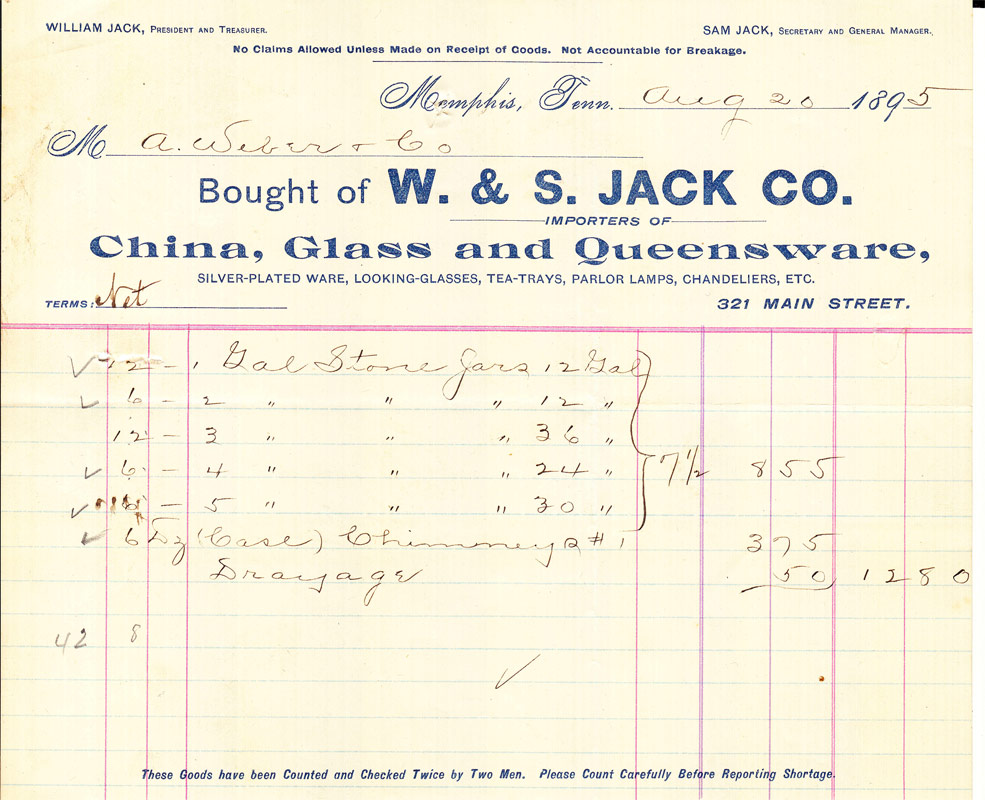 WILLIAM JACK, PRESIDENT AND TREASURER.
SAM JACK, SECRETARY AND GENERAL MANAGER.
No Claims Allowed Unless Made on Receipt of Goods. Not Accountable for Breakage.
Memphis, Tenn. Aug 20 1895
M A. Weber & Co
Bought of W. & S. JACK CO.
IMPORTERS OF
China, Glass and Queensware,
SILVER-PLATED WARE, LOOKING-GLASSES, TEA-TRAYS, PARLOR LAMPS, CHANDELIERS, ETC.
TERMS: Net
321 MAIN STREET.
✓ 12 - 1 Gal Stone Jars 12 Gal
✓ 6 - 2 " " " 12 "
12 - 3 " " " 36 "
✓ 6 - 4 " " " 24 " 7 1/2 855
✓ 6 - 5 " " " 30 "
✓ 6 Dz (Case) Chimneys # 1 375
Drayage 50 1280
42 8
✓
These Goods have been Counted and Checked Twice by Two Men. Please Count Carefully Before Reporting Shortage.